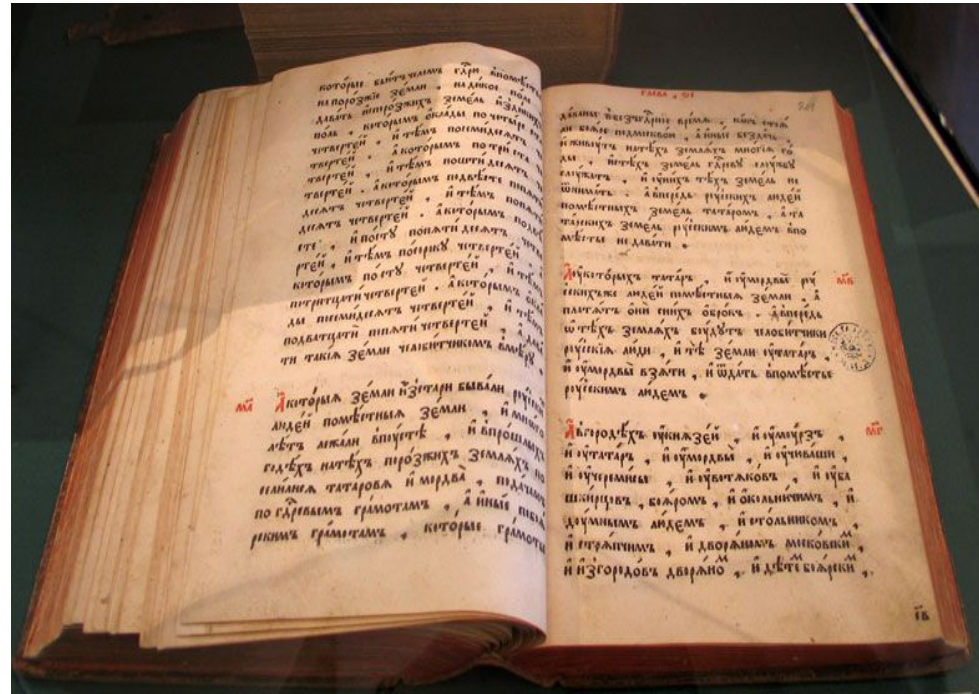 которые бьютъ челомъ гдⷭ҇рю впомѣсть
напоро́зжїе зе́мли , надикое поле ,
давать и҆спорозжихъ земе́ль и҆здикихъ
поль , которымъ ѻклады почетыре ста
четвертє́й , и҆тѣ́мъ посемидесятъ ч
твертє́й . а҆которымъ потри ста
твертє́й , и҆тѣ́мъ пошти десятъ
твертє́й . а҆которымъ подвѣсте
десятъ четвертє́й , и҆тѣ́мъ попяти
десятъ четвертє́й . а҆которымъ подвѣ
сте , и҆посту попяти десятъ четве
ртє́й , и҆тѣ́мъ посорику четвертє́й .
которымъ посту четвертє́й , и҆тѣ́мъ
потритцати четвертє́й . а҆которымъ ѻкла
ды посемидесятъ четвертє́й , и҆тѣ́мъ
подватцати попяти четвертє́й ,
ти такїя зе́мли челобитчикомъ вмѣ́рꙋ .
м҃а А҆кото́рыя зе́мли и҆́зстари быва́ли рꙋ́ски
люде́й помѣ́стныя зе́мли , и҆много
лѣ́тъ лежа́ли впꙋстѣ̀ , и҆впро́шлыхъ
годѣ́хъ натѣ́хъ поро́зжихъ земляхъ по
сели́лися татаровя и҆ мордва̀ , подача́мъ
по гдⷭ҇ревымъ гра́мотамъ , а҆ и҆ные побоя́
рскимъ гра́мотамъ , кото́рые гра́моты
глава , ѕ҃і
да́ваны вбезгдⷭ҇рное вре́мя , ка́къ стоя́
ли боя́ре подмосково́ю , а҆и҆ные безда́чь ,
и҆живꙋ́тъ натѣ́хъ земля́хъ мно́гїя го́
ды , и҆стѣ́хъ земе́ль гдⷭ҇ревꙋ слꙋ́жбꙋ
слꙋ́жатъ , и҆ оу҆ни́хъ тѣ́хъ земе́ль не
ѿнима́ть . а҆впере́дь рꙋ́сскихъ люде́й
помѣ́стныхъ земе́ль тата́ромъ , а҆та
та́рскихъ земе́ль рꙋ́сскимъ лю́демъ впо
мѣ́стье недава́ти .
А҆оу҆кото́рыхъ тата́ръ , и҆ оу҆мордвы̀ рꙋ́ м҃в
сскихъже люде́й помѣ́стныя зе́мли , а҆
пла́тятъ ѻ҆нѝ сни́хъ ѻ҆бро́къ . а҆впере́дь
ѡ҆ тѣ́хъ земля́хъ бꙋ́дꙋтъ челоби́тчики
рꙋ́сскїя лю́ди , и҆ тѣ̀ зе́мли оу҆тата́ръ ,
и҆ оу҆мордвы̀ взя́ти , и҆ ѿда́ть впомѣ́стье
рꙋ́сскимъ лю́демъ .
А҆вгородѣ́хъ оу҆князе́й , и҆ оу҆мꙋ́рзъ , м҃г
и҆ оу҆тата́ръ , и҆ оу҆мордвы̀ , и҆ оу҆чюва́ши ,
и҆ оу҆череми́сы , и҆ оу҆вотяко́въ , и҆ оу҆ба
шки́рцовъ , боя́ромъ , и҆ ѻ҆ко́льничимъ , и҆
дꙋ́мнымъ лю́демъ , и҆ сто́льникомъ ,
и҆ стря́пчимъ , и҆ дворя́номъ моско́вскиⷨ ,
и҆ и҆́згородовъ дворя́ноⷨ , и҆ дѣ́теⷨ боя́рскиⷨ ,